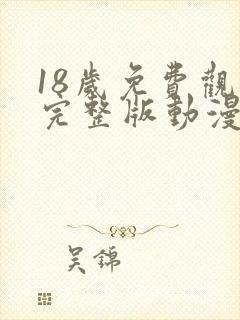 18歲免費觀
完整版動漫
吴錦